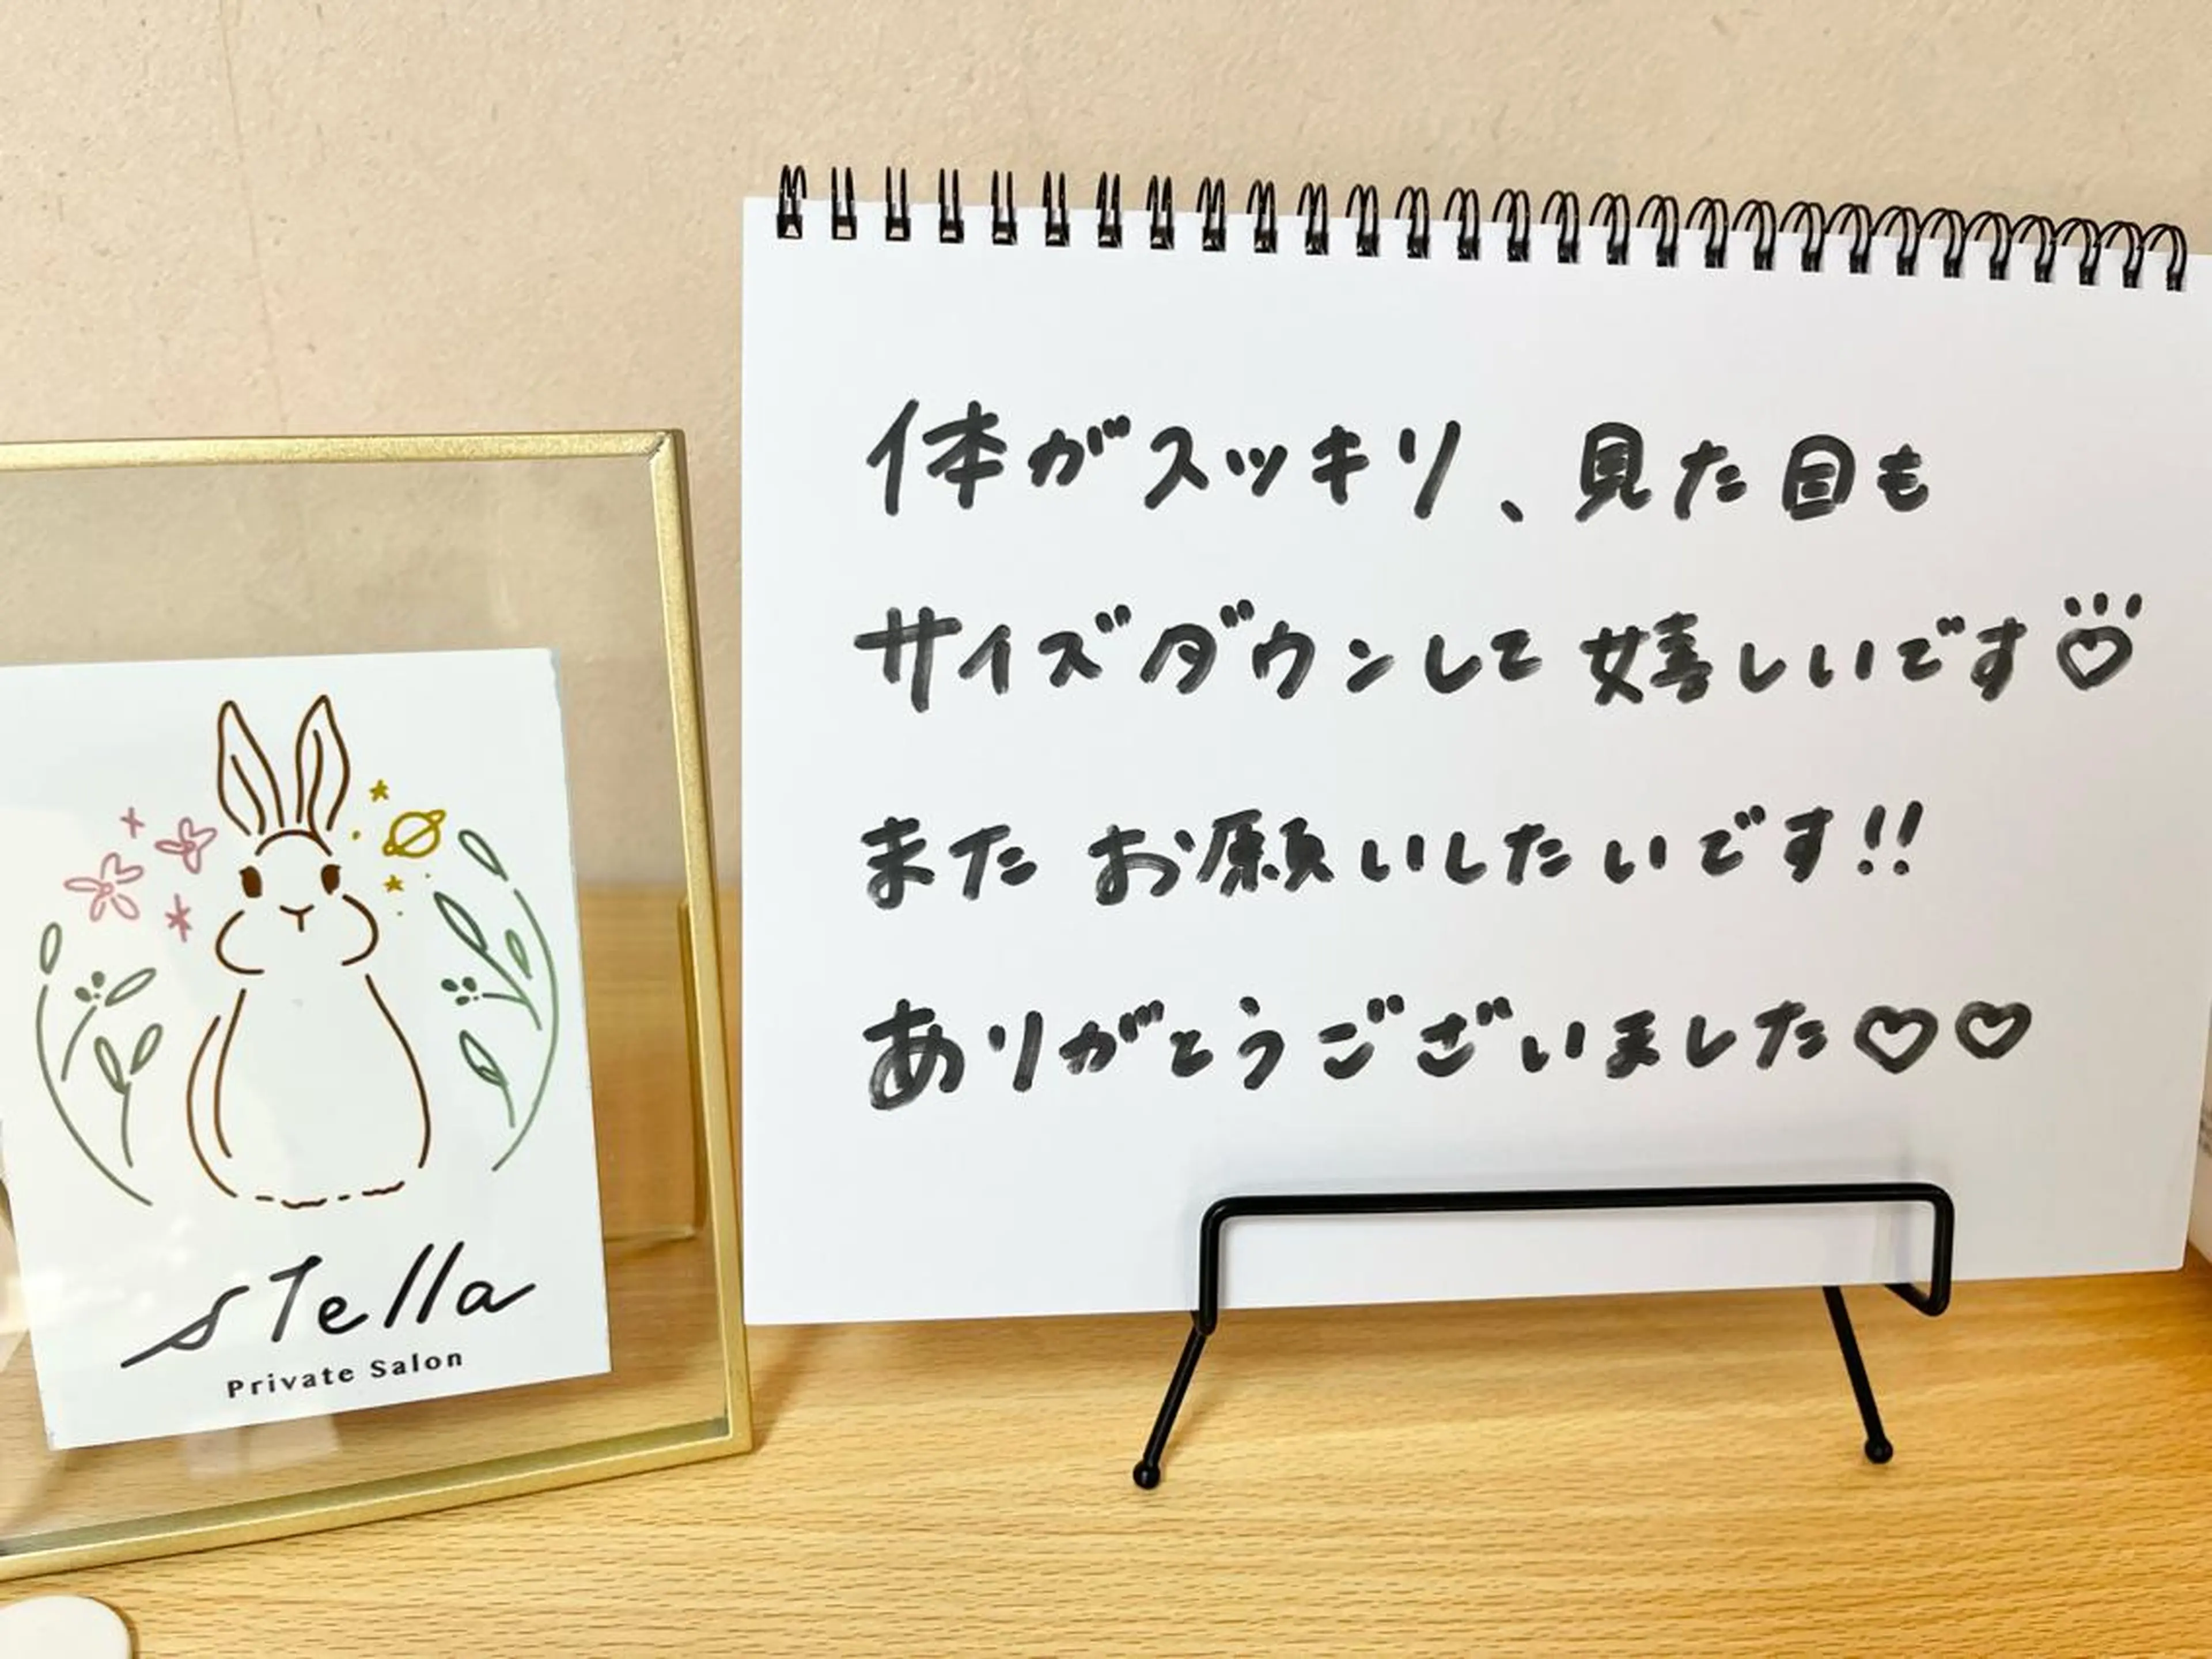 stella
Private Salon
体がスッキリ、見た目も
サイズダウンして嬉しいです♡
またお願いしたいです!!
ありがとうございました♡♡